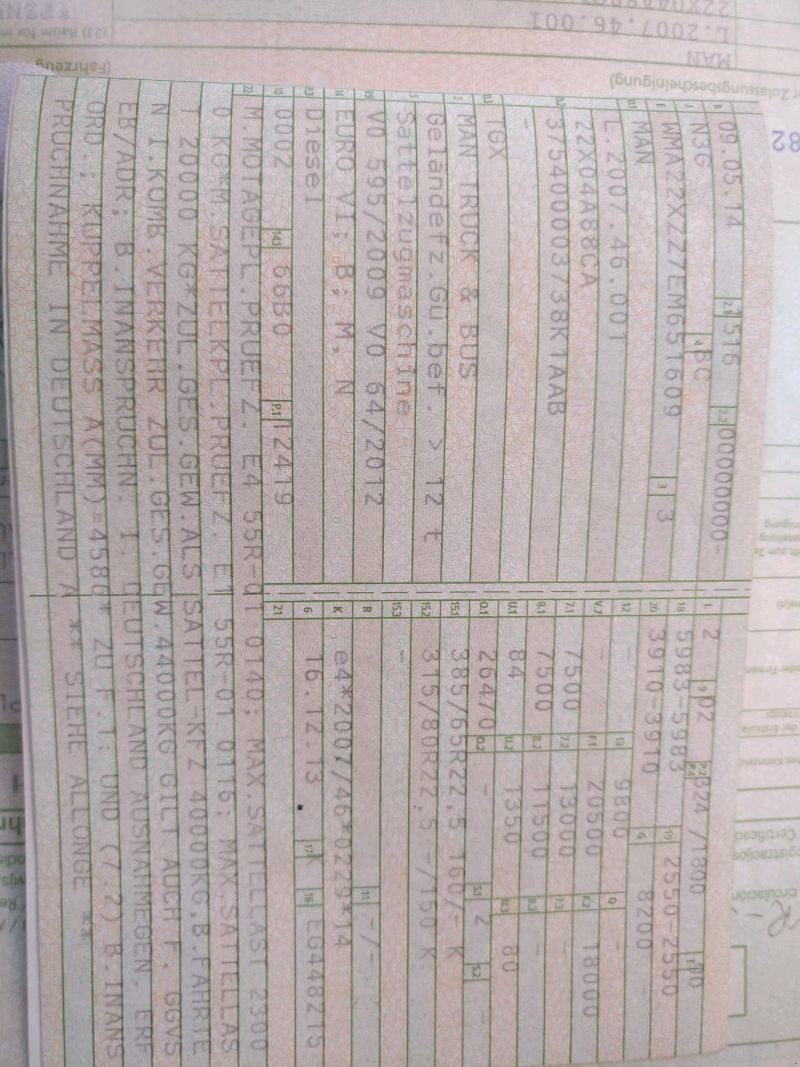 B 09.05.14 2.1 1516 2.2 00000000-
J N3G 4 BC
E WMA22XZZ7EM651609 3 3
D.1 MAN
L.2007.46.001
D.2 22X04A88CA
375400003738K1AAB
-
D.3 TGX
2 MAN TRUCK & BUS
5 Geländefz.Gü.bef. > 12 t
Sattelzugmaschine
V.9 VO 595/2009 VO 64/2012
14 EURO VI; B; M, N
P.3 Diesel
10 0002 14.1 66B0 P.1 12419
L 2 9 02 P.2 P.4 324 /1800 T 90
18 5983-5983 19 2550-2550
20 3910-3910 G 8200
12 - 13 9800 Q -
V.7 - F.1 20500 F.2 18000
7.1 7500 7.2 13000 7.3 -
8.1 7500 8.2 11500 8.3 -
U.1 84 U.2 1350 U.3 80
O.1 264/0 O.2 - S.1 2 S.2 -
15.1 385/65R22,5 160/- K
15.2 315/80R22,5 -/150 K
15.3 -
R 11 -/-
K e4*2007/46*0229*14
6 16.12.13 17 K 16 EG448215
21
22 M.MOTAGEPL.PRUEFZ. E4 55R-01 0140; MAX.SATTELLAST 2300
0 KG*M.SATTELKPL.PRUEFZ. E1 55R-01 0115; MAX.SATTELLAS
T 20000 KG*ZUL.GES.GEW.ALS SATTEL-KFZ 40000KG,B.FAHRTE
N I.KOMB.VERKEHR ZUL.GES.GEW.44000KG GILT AUCH F. GGVS
EB/ADR; B.INANSPRUCHN. I. DEUTSCHLAND AUSNAHMEGEN. ERF
ORD.; KUPPELMASS A(MM)=4580* ZU F.1; UND (7.2) B.INANS
PRUCHNAHME IN DEUTSCHLAND A ** SIEHE ALLONGE **
r Zulassungsbescheinigung)
(Fahrzeug
MAN
L.2007.46.001
82